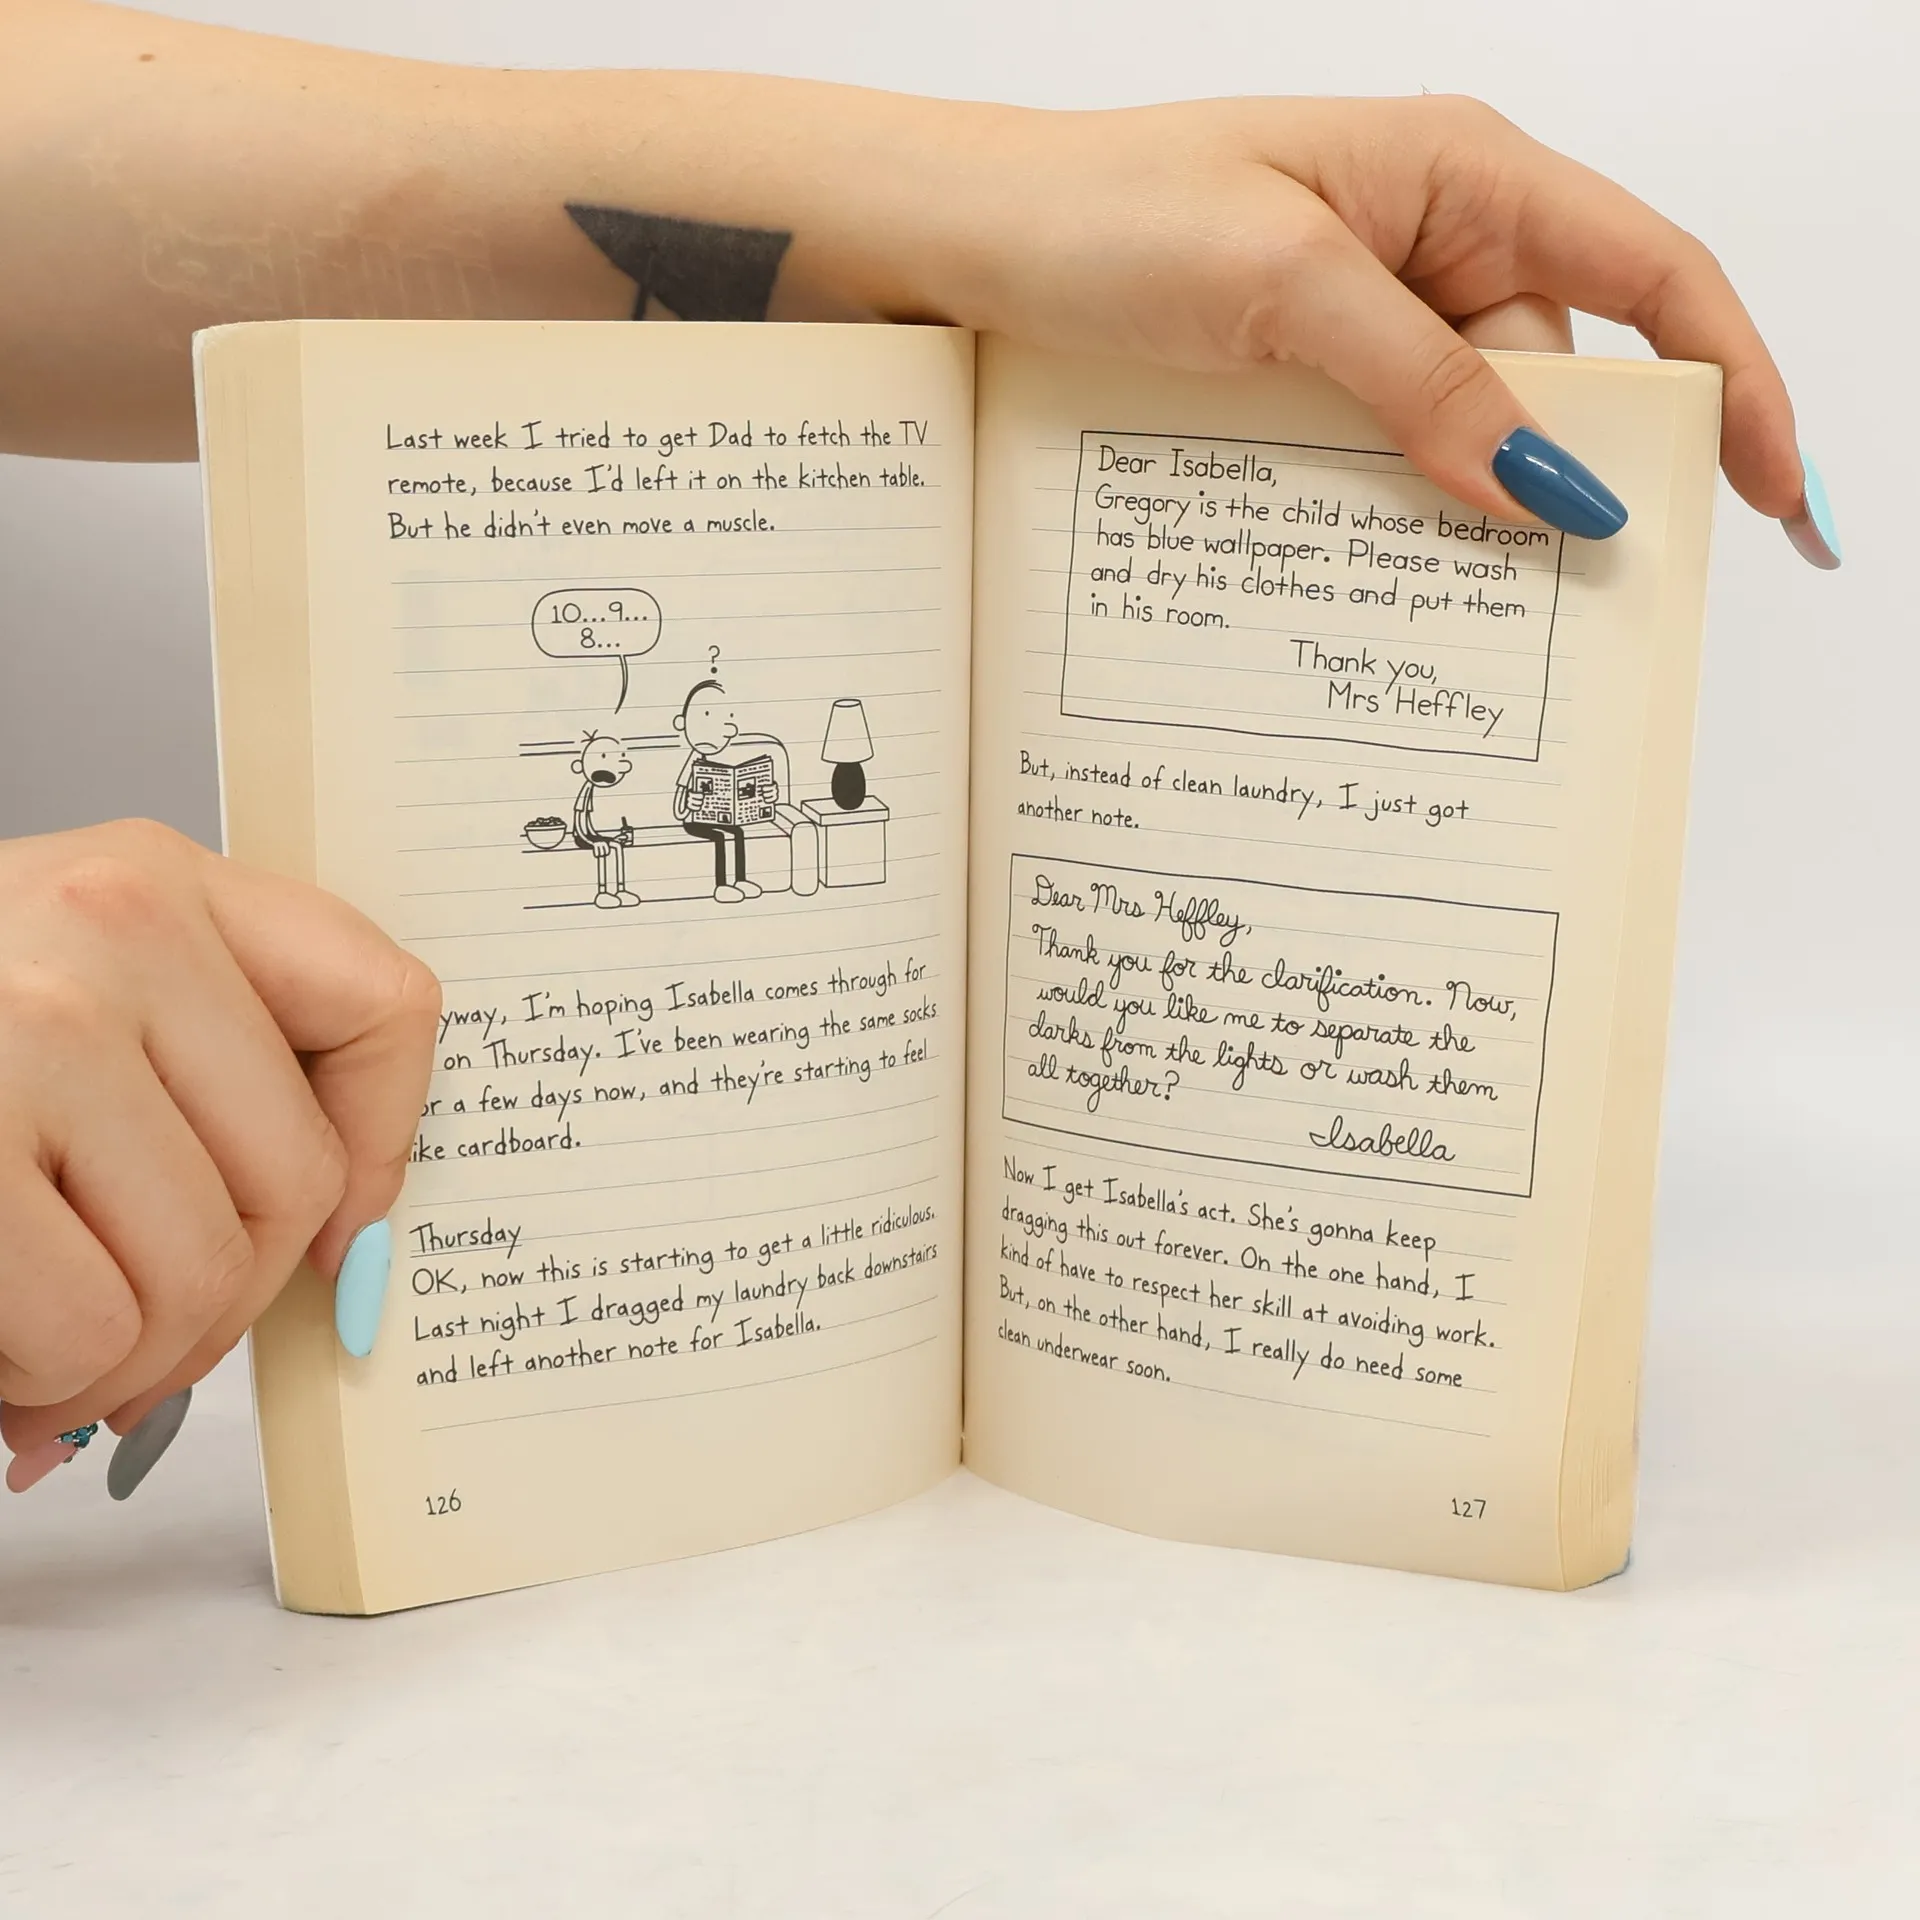 Last week I tried to get Dad to fetch the TV
remote, because I'd left it on the kitchen table.
But he didn't even move a muscle.
10...9...
8...
?
yway, I'm hoping Isabella comes through for
on Thursday. I've been wearing the same socks
or a few days now, and they're starting to feel
ike cardboard.
Thursday
OK, now this is starting to get a little ridiculous.
Last night I dragged my laundry back downstairs
and left another note for Isabella.
126
Dear Isabella,
Gregory is the child whose bedroom
has blue wallpaper. Please wash
and dry his clothes and put them
in his room.
Thank you,
Mrs Heffley
But, instead of clean laundry, I just got
another note.
Dear Mrs Heffley,
Thank you for the clarification. Now,
would you like me to separate the
darks from the lights or wash them
all together?
Isabella
Now I get Isabella's act. She's gonna keep
dragging this out forever. On the one hand, I
kind of have to respect her skill at avoiding work.
But, on the other hand, I really do need some
clean underwear soon.
127